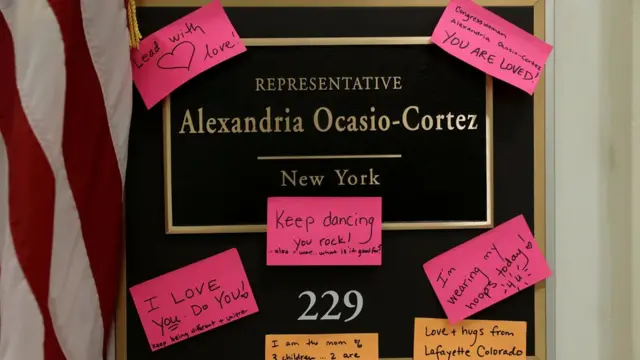 Lead with
love!
Congresswoman
Alexandria Ocasio-Cortez
YOU ARE LOVED!
REPRESENTATIVE
Alexandria Ocasio-Cortez
New York
Keep dancing
you rock!
also - war... what is it good for?
I LOVE
YOU. Do YOU!
keep being different +
I'm
wearing my
hoops today!
4 U
229
I am the mom of
3 children ... 2 are
Love + hugs from
Lafayette Colorado